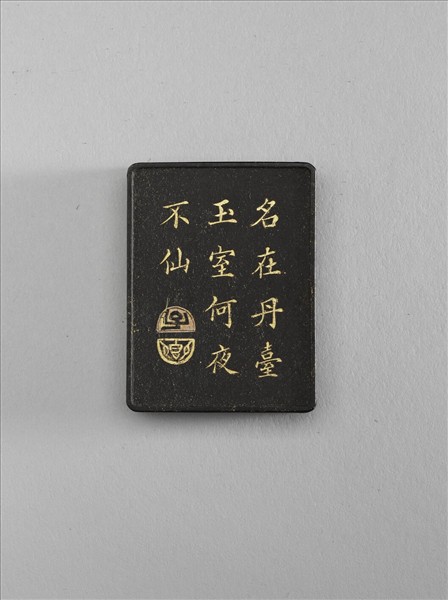 名在丹臺
玉室何夜
不仙